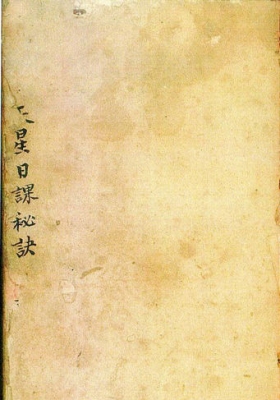 天星日課秘訣